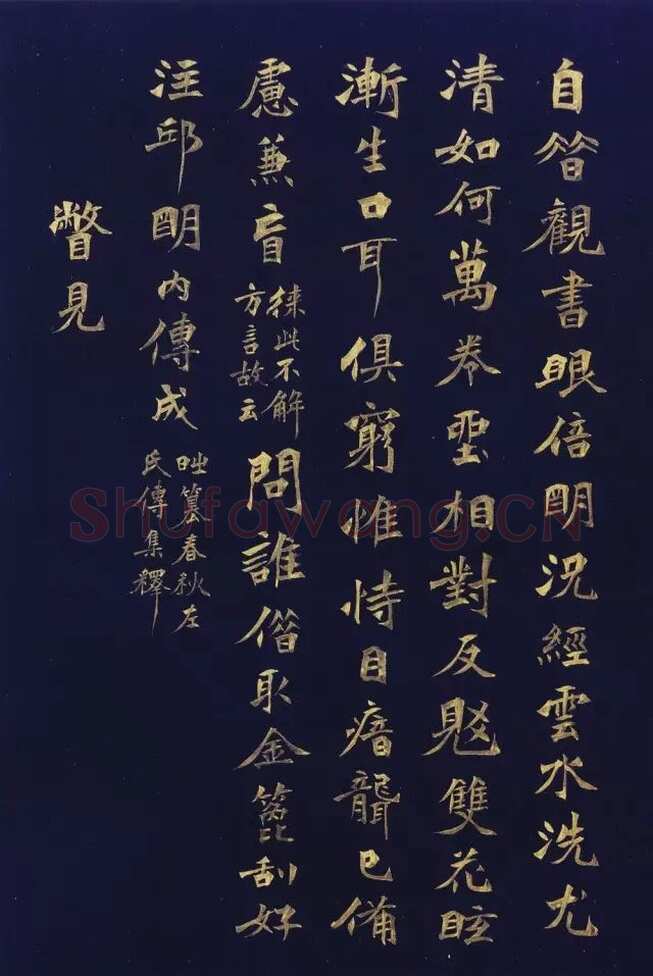 自昔觀書眼倍明況經雲水洗尤
清如何萬卷相對反覺雙花眩
漸生口耳俱窮惟恃目瘖聾已備
慮兼盲
徠此不解
方言故云
問誰借取金篦刮好
注邱明內傳成
時纂春秋左
氏傳集釋
瞥見
Shufawang.CN